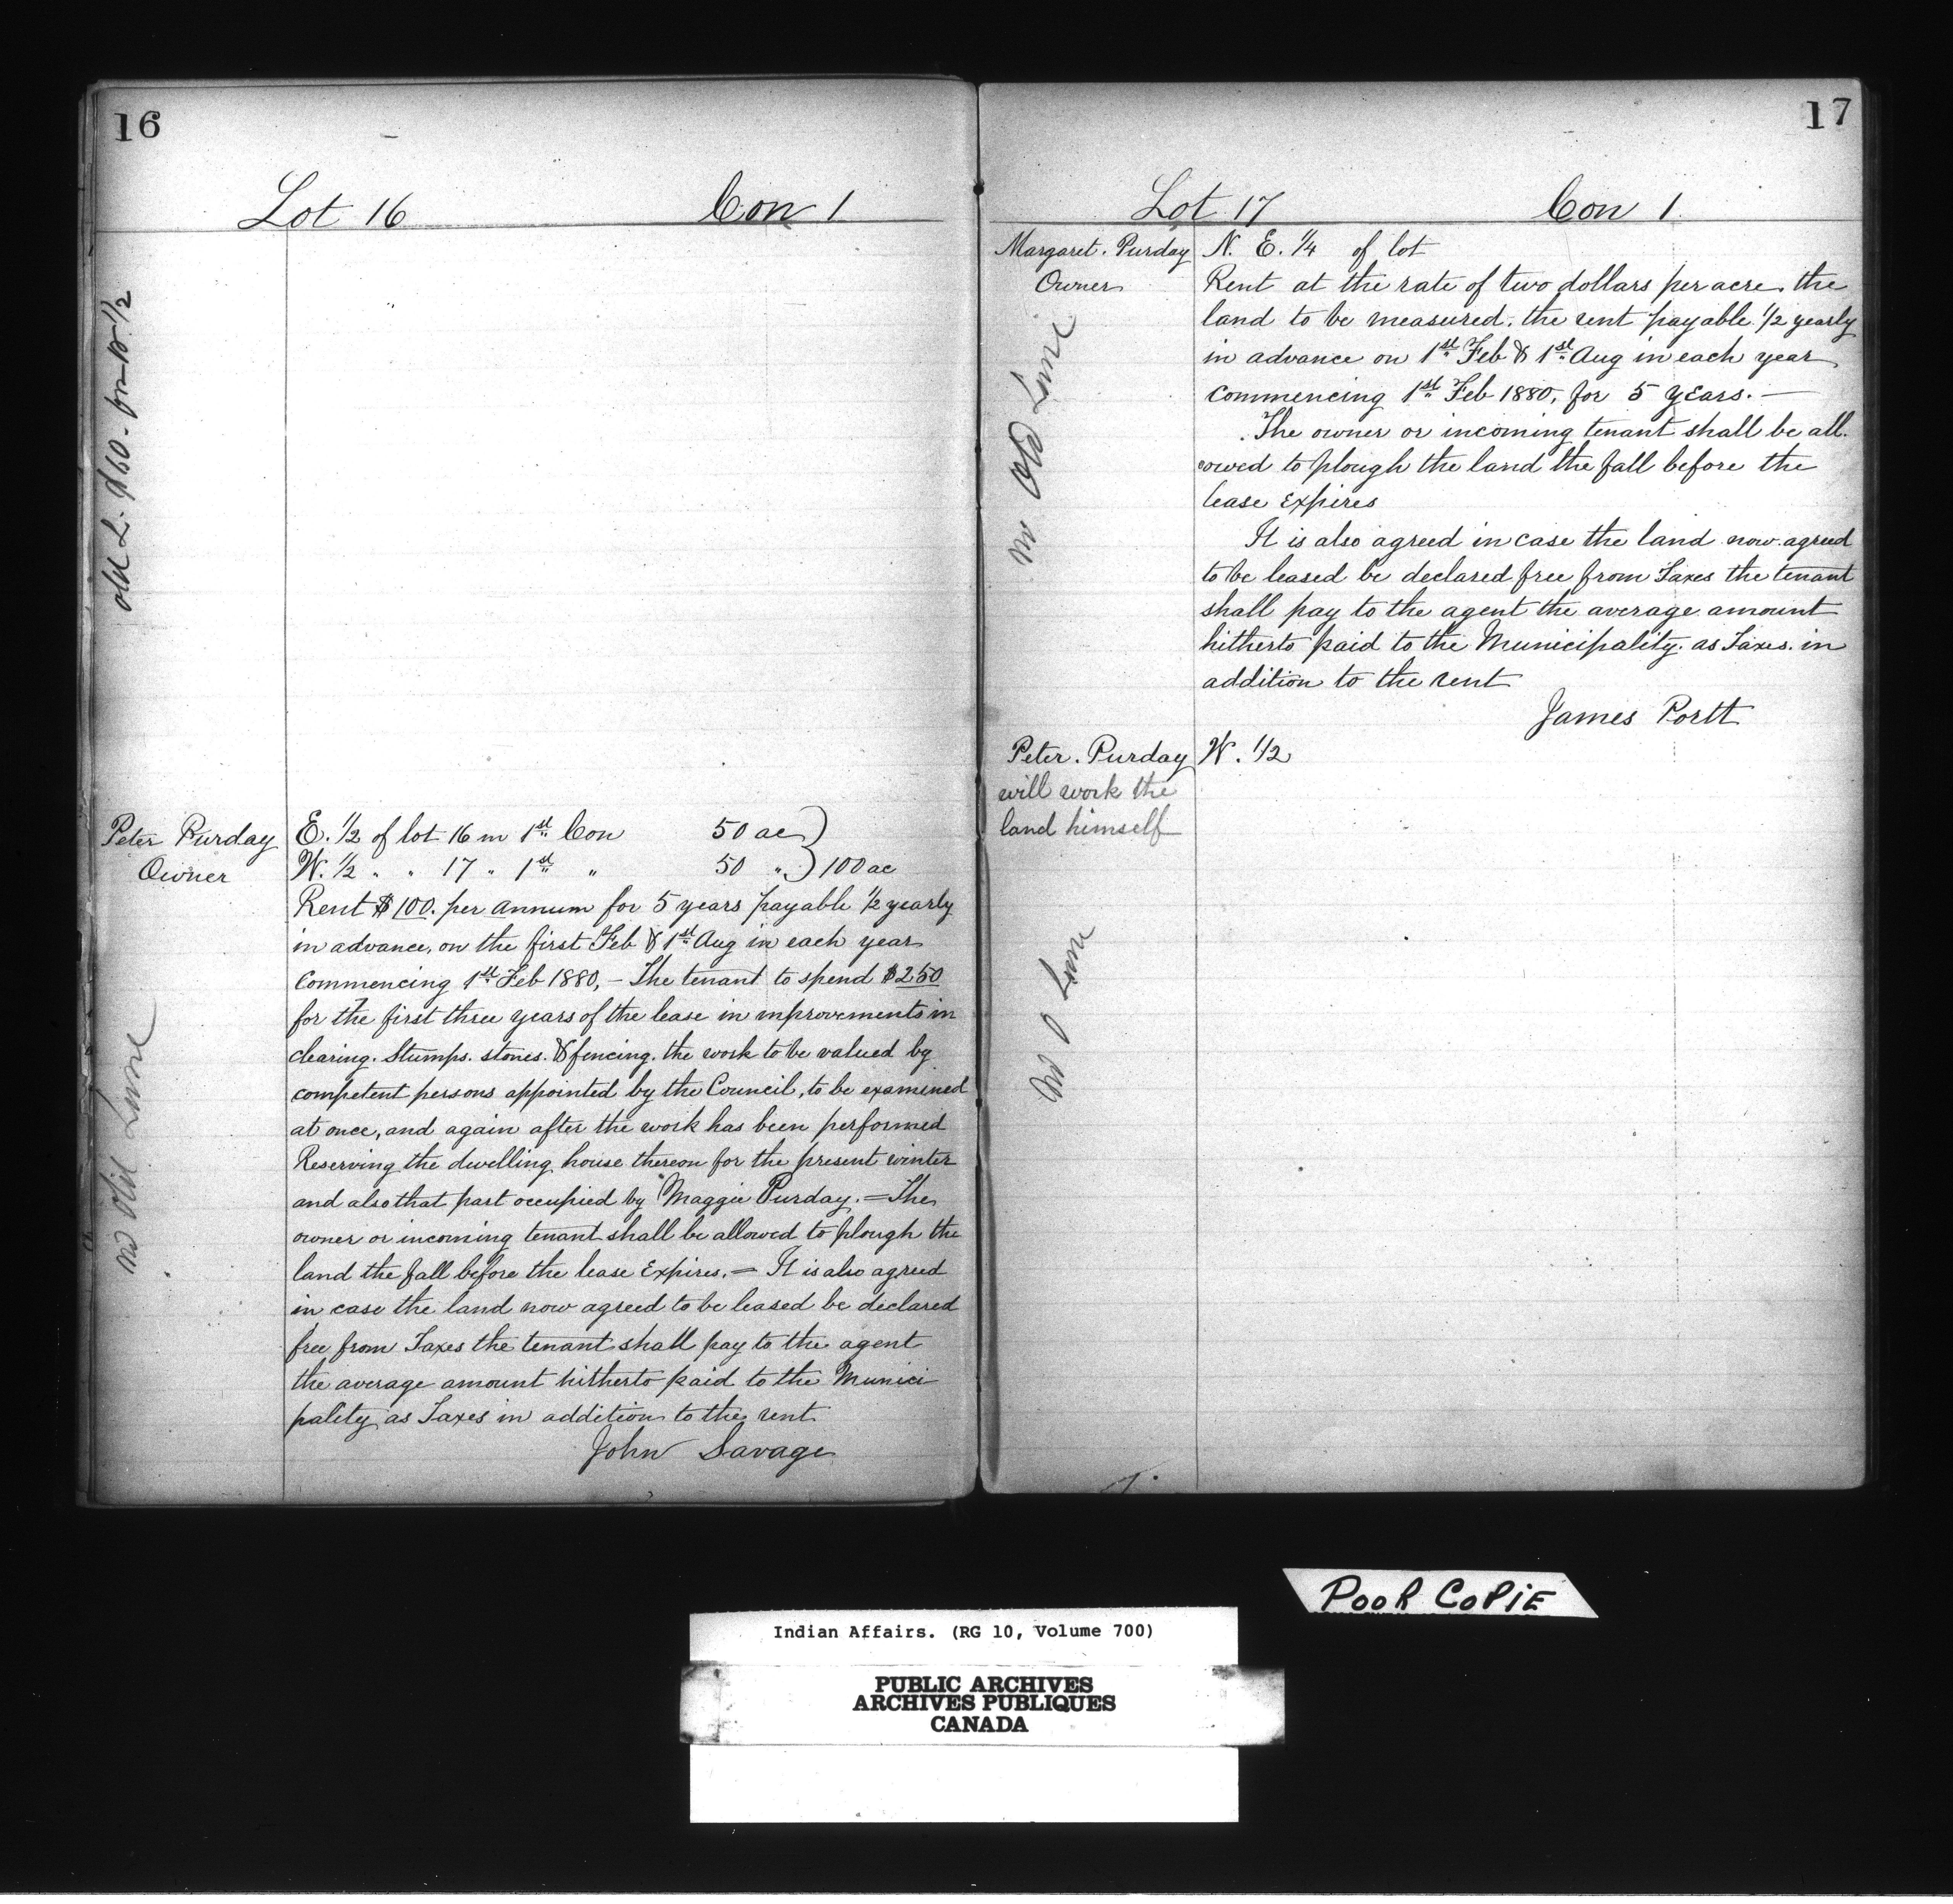 16
Lot 16 Con 1
old L. $60 - on W. 1/2
Peter Purday
Owner
no Old Lease
E. 1/2 of lot 16 in 1st Con 50 ac
W. 1/2 " " 17 " 1st " 50 " 100 ac
Rent $100. per annum for 5 years payable 1/2 yearly
in advance, on the first Feb & 1st Aug in each year
Commencing 1st Feb 1880, – The tenant to spend $250
for the first three years of the lease in improvements in
clearing. Stumps. stones. & fencing. the work to be valued by
competent persons appointed by the Council, to be examined
at once, and again after the work has been performed
Reserving the dwelling house thereon for the present winter
and also that part occupied by Maggie Purday. = The
owner or incoming tenant shall be allowed to plough the
land the fall before the lease Expires. = It is also agreed
in case the land now agreed to be leased be declared
free from Taxes the tenant shall pay to the agent
the average amount hitherto paid to the Munici
pality as Taxes in addition to the rent
John Savage
17
Lot 17 Con 1
Margaret. Purday
Owner
no Old Lease
N. E. 1/4 of lot
Rent at the rate of two dollars per acre. the
land to be measured. the rent payable 1/2 yearly
in advance on 1st Feb & 1st Aug in each year
Commencing 1st Feb 1880, for 5 years. —
The owner or incoming tenant shall be all-
owed to plough the land the fall before the
lease Expires
It is also agreed in case the land now agreed
to be leased be declared free from Taxes the tenant
shall pay to the agent the average amount
hitherto paid to the Municipality. as Taxes. in
addition to the rent
James Portt
Peter. Purday
will work the
land himself
W. 1/2
no O Lease
POOR COPIE
Indian Affairs. (RG 10, Volume 700)
PUBLIC ARCHIVES
ARCHIVES PUBLIQUES
CANADA